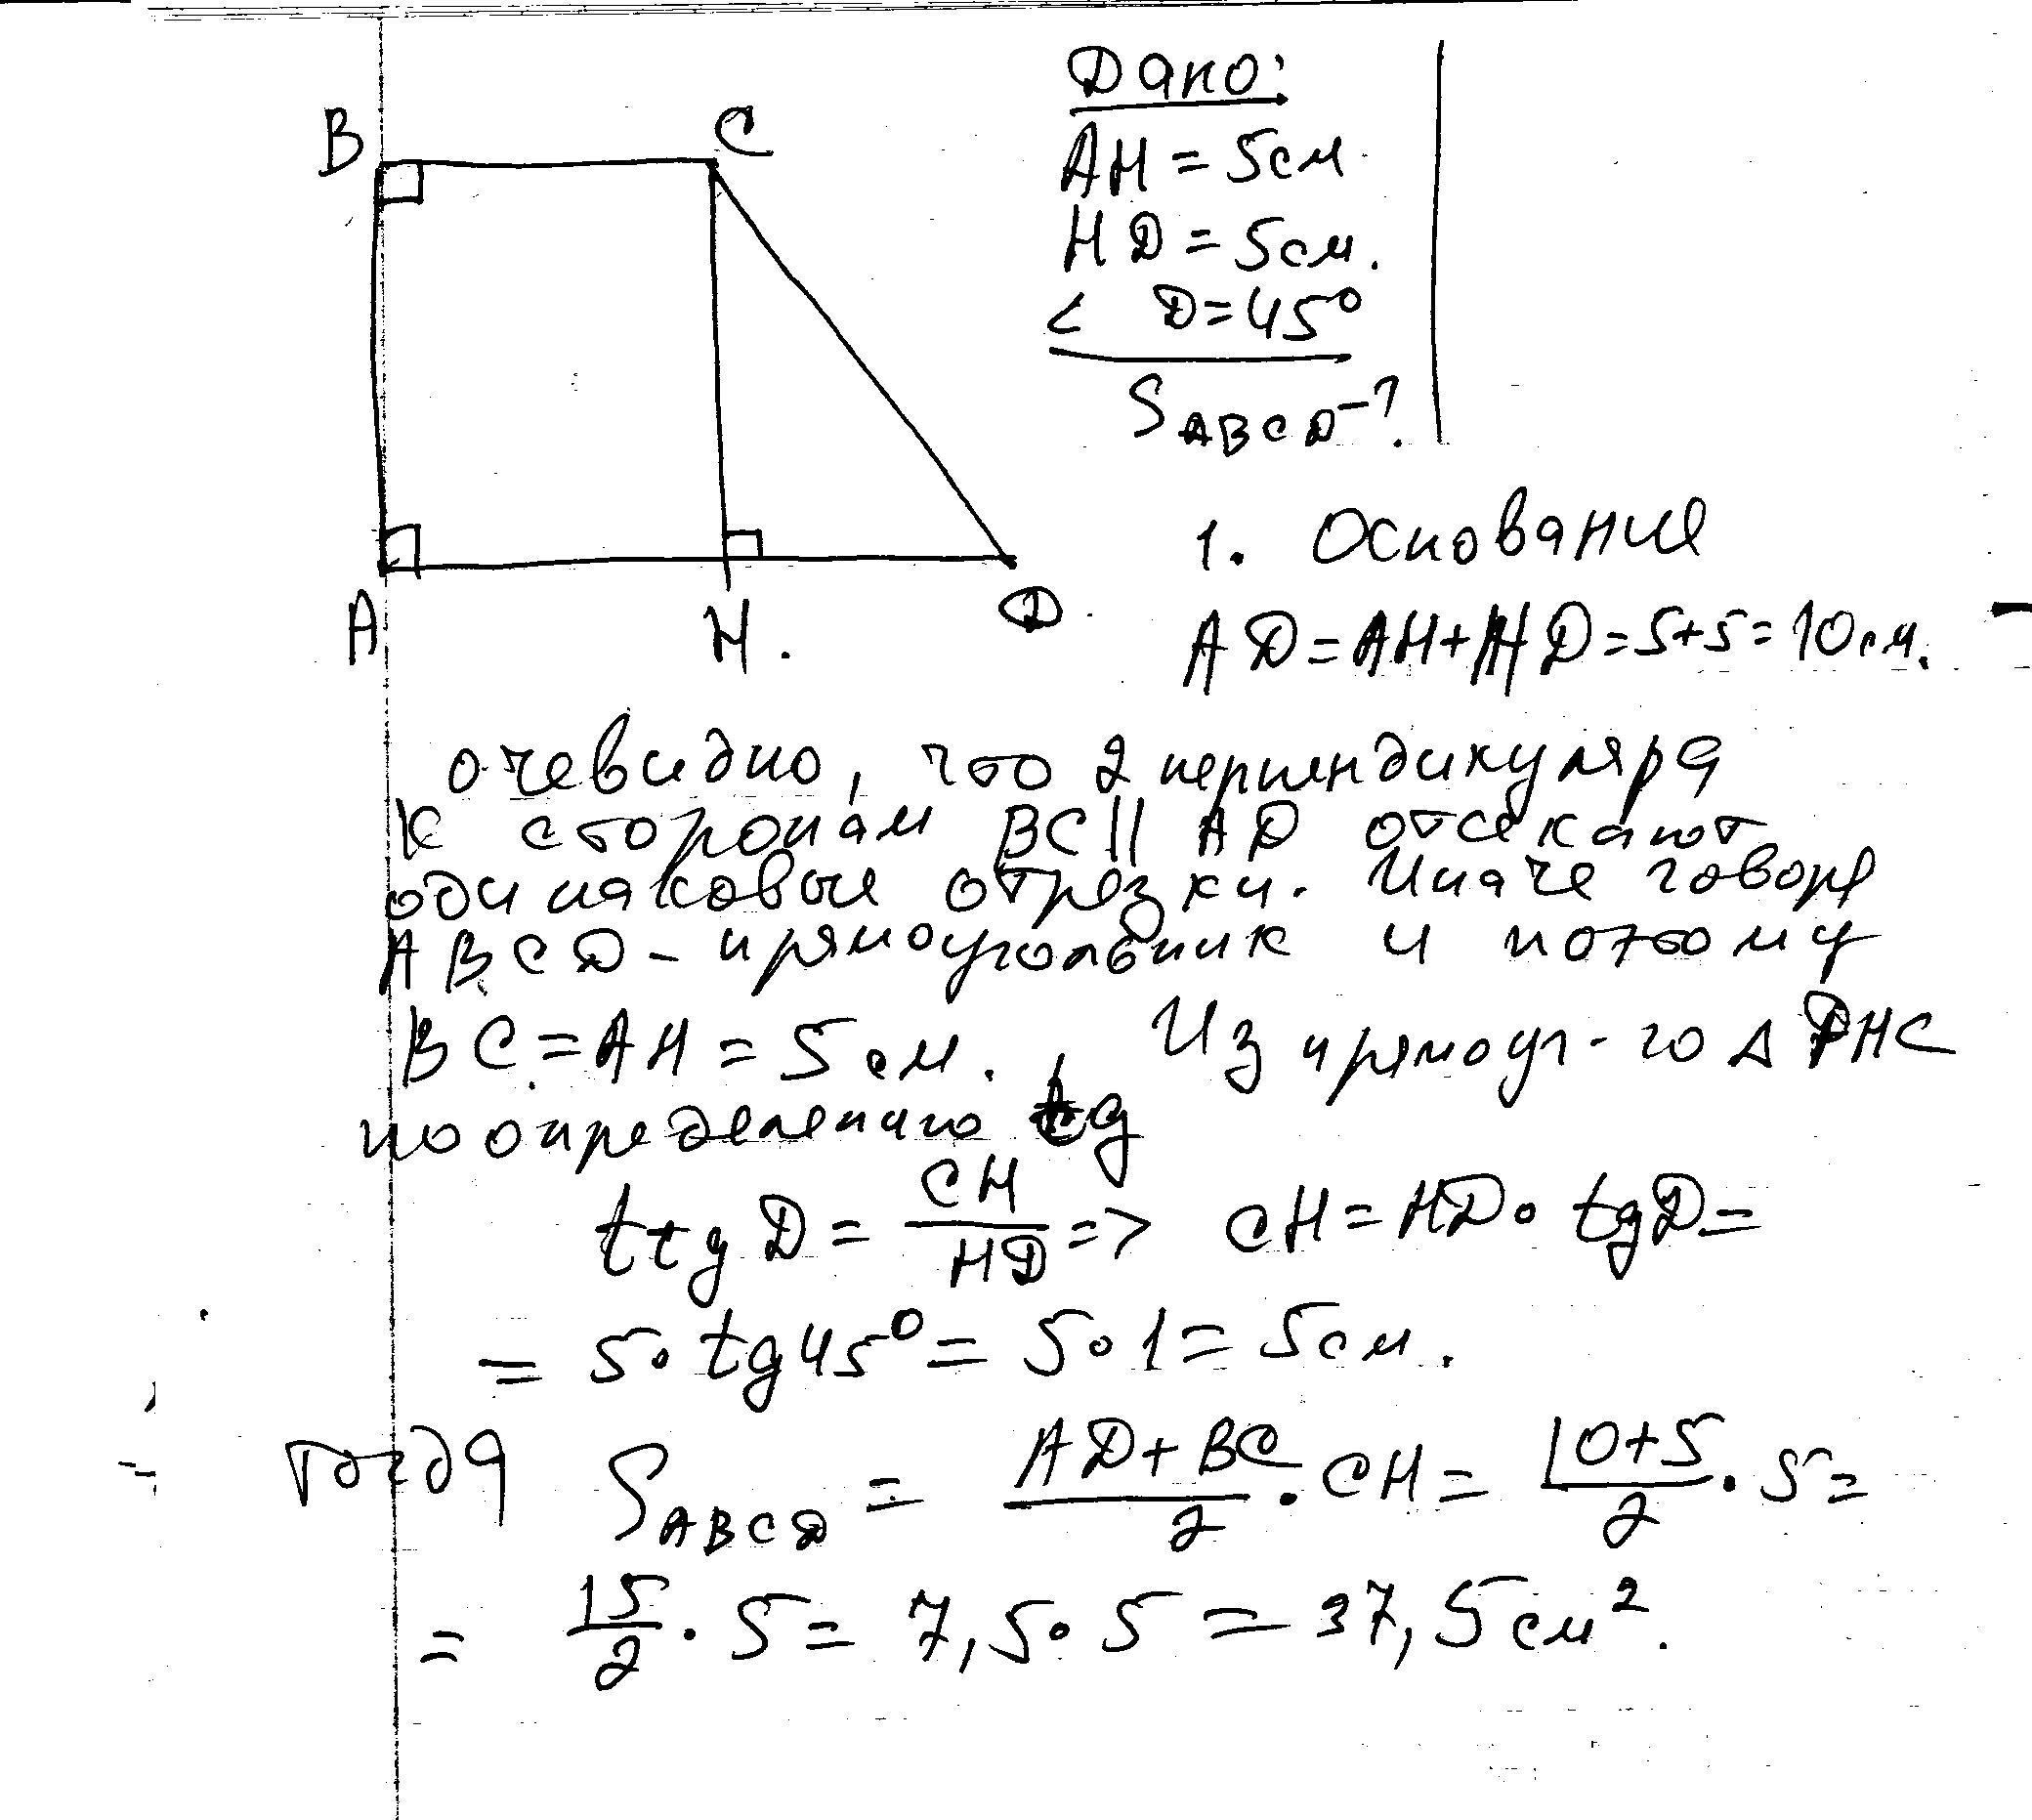 B C
A H. D
Дано:
AH = 5см.
HD = 5см.
< D = 45°
S ABCD - ?
1. Основание
AD = AH + HD = 5 + 5 = 10см.
очевидно, что 2 перпендикуляра
к сторонам BC || AD отсекают
одинаковые отрезки. Иначе говоря
ABCD - прямоугольник и потому
BC = AH = 5 см. Из прямоуг-го Δ DHC
по определению tg
ttg D = CH / HD => CH = HD • tg D =
= 5 • tg 45° = 5 • 1 = 5см.
тогда S ABCD = AD + BC / 2 • CH = 10 + 5 / 2 • 5 =
= 15 / 2 • 5 = 7,5 • 5 = 37,5 см².